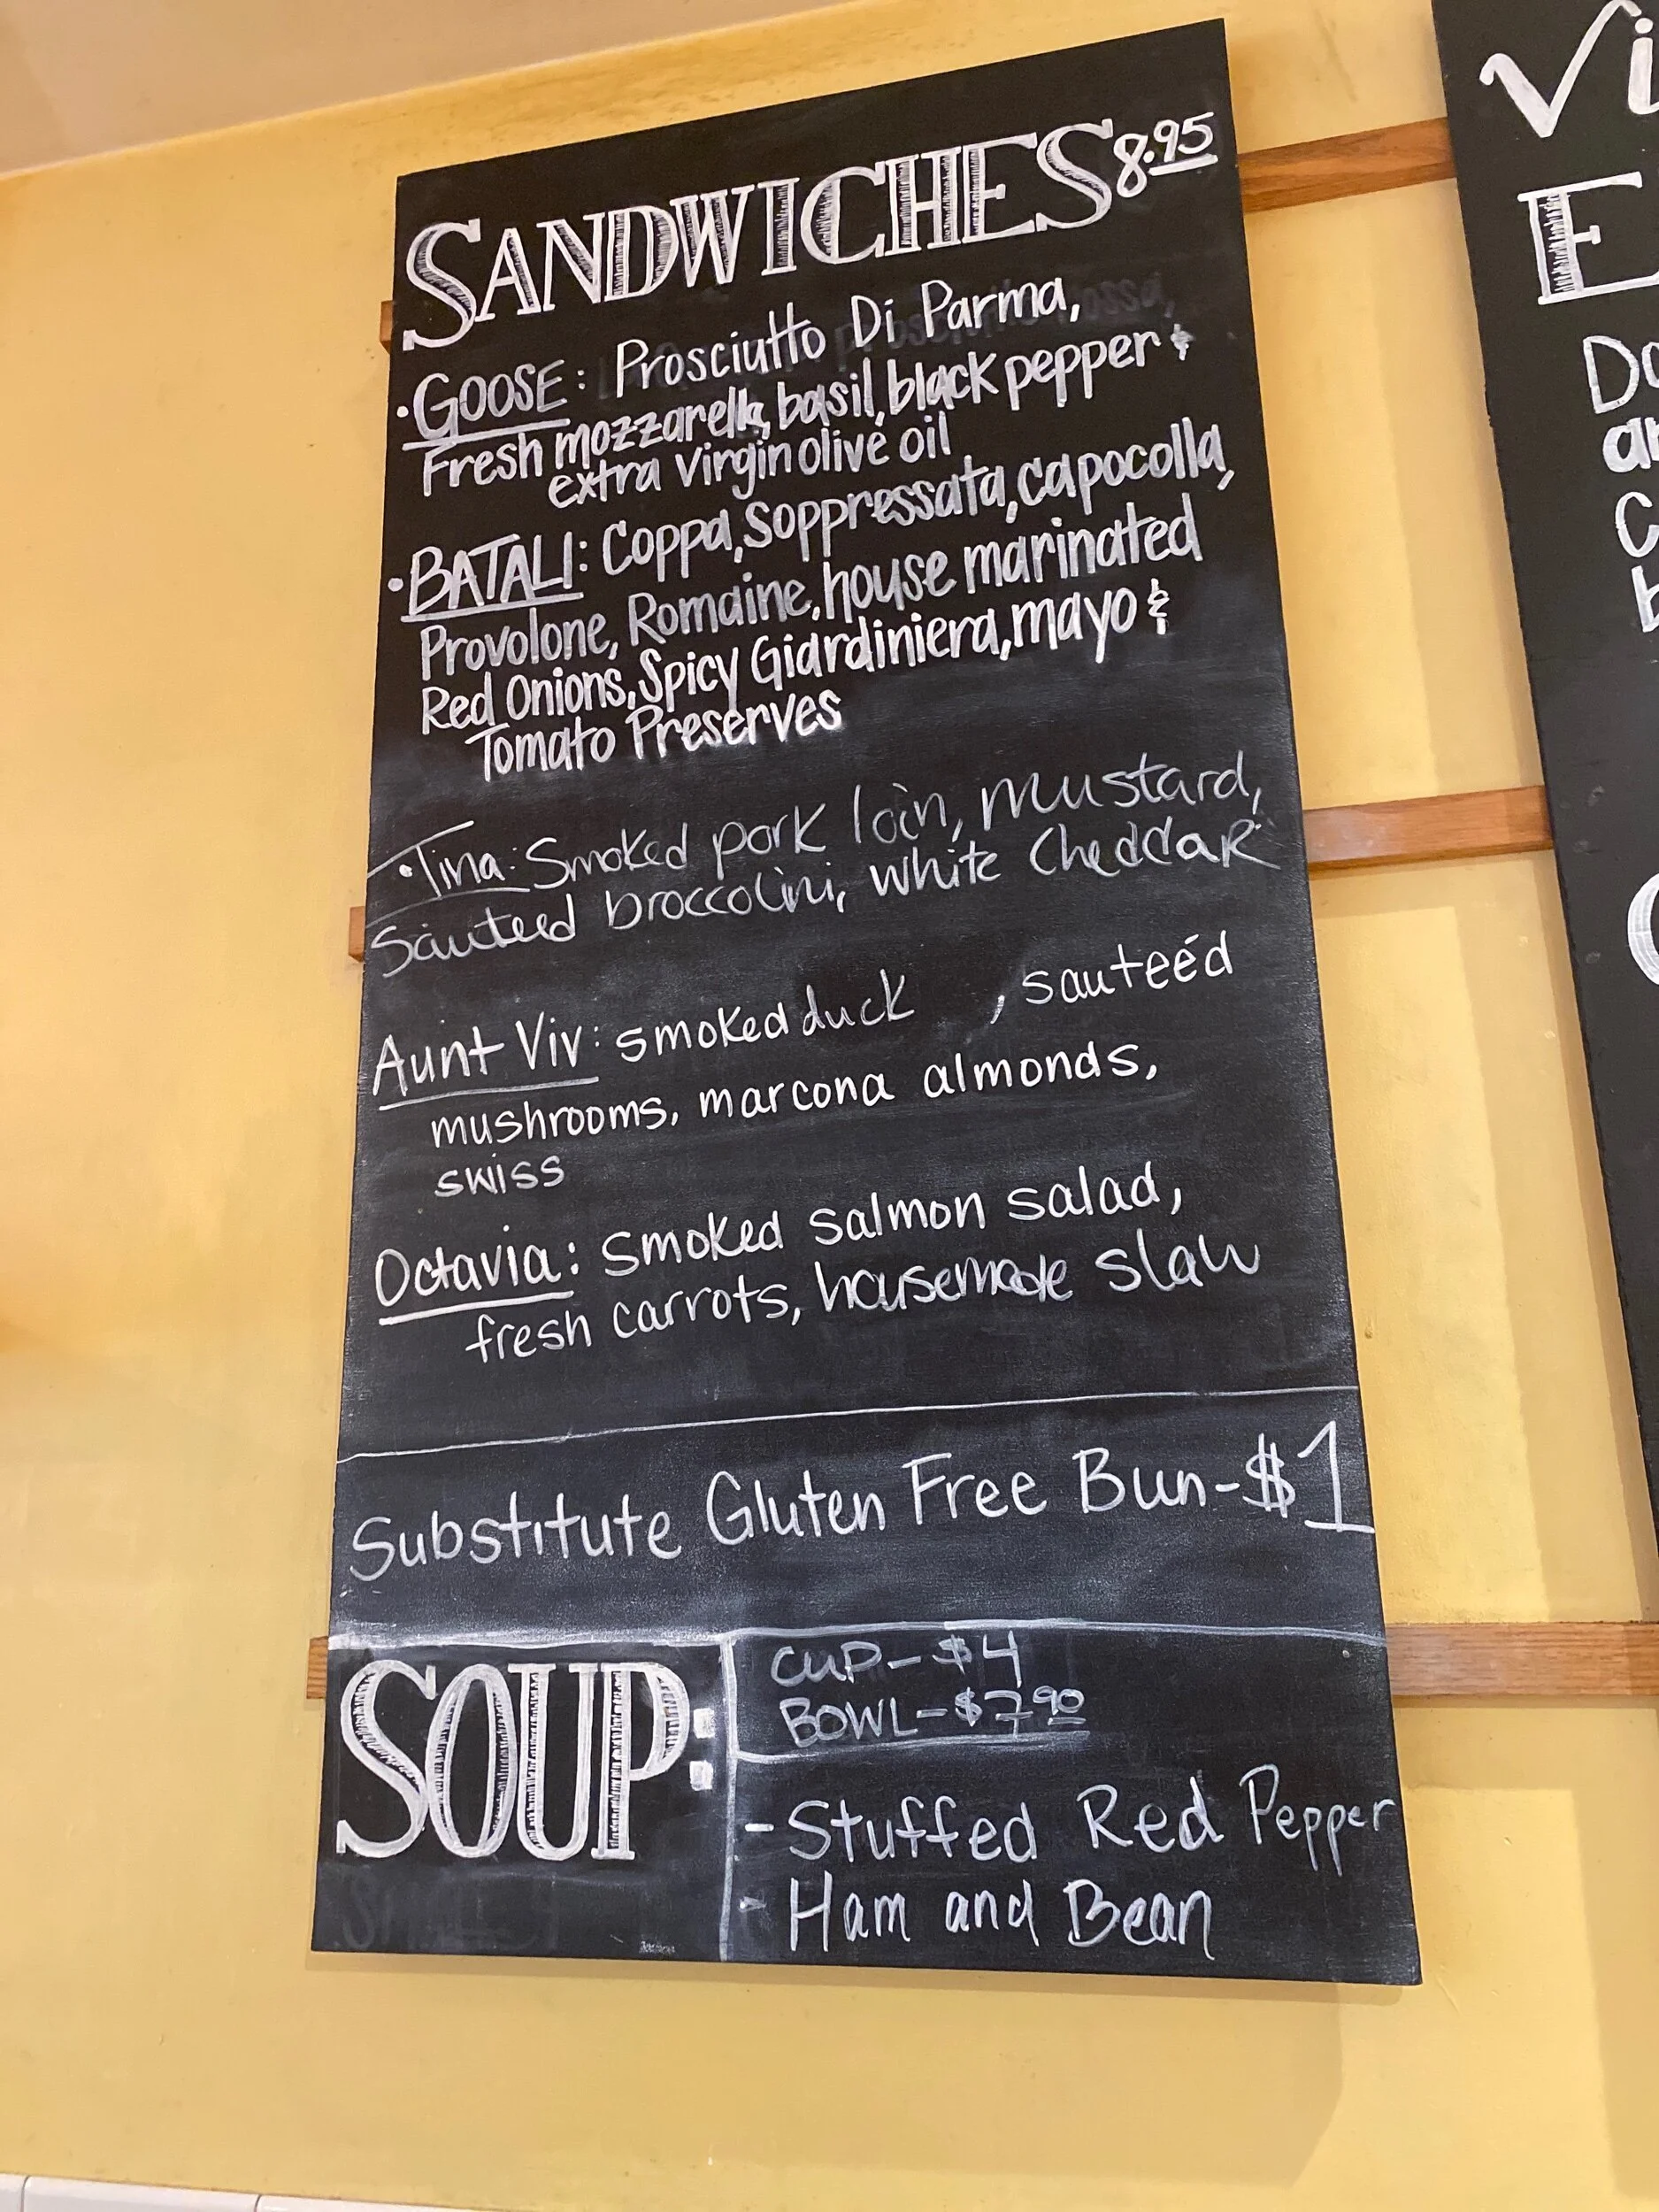 SANDWICHES 8.95
• GOOSE: Prosciutto Di Parma,
Fresh mozzarella, basil, black pepper &
extra virgin olive oil
• BATALI: Coppa, Soppressata, capocolla,
Provolone, Romaine, house marinated
Red Onions, Spicy Giardiniera, mayo &
Tomato Preserves
• Tina: Smoked pork loin, mustard,
Sauteed broccolini, white Cheddar
Aunt Viv: smoked duck , sauteéd
mushrooms, marcona almonds,
swiss
Octavia: smoked salmon salad,
fresh carrots, housemade slaw
Substitute Gluten Free Bun-$1
SOUP:
CUP-$4
BOWL-$7.90
- Stuffed Red Pepper
- Ham and Bean